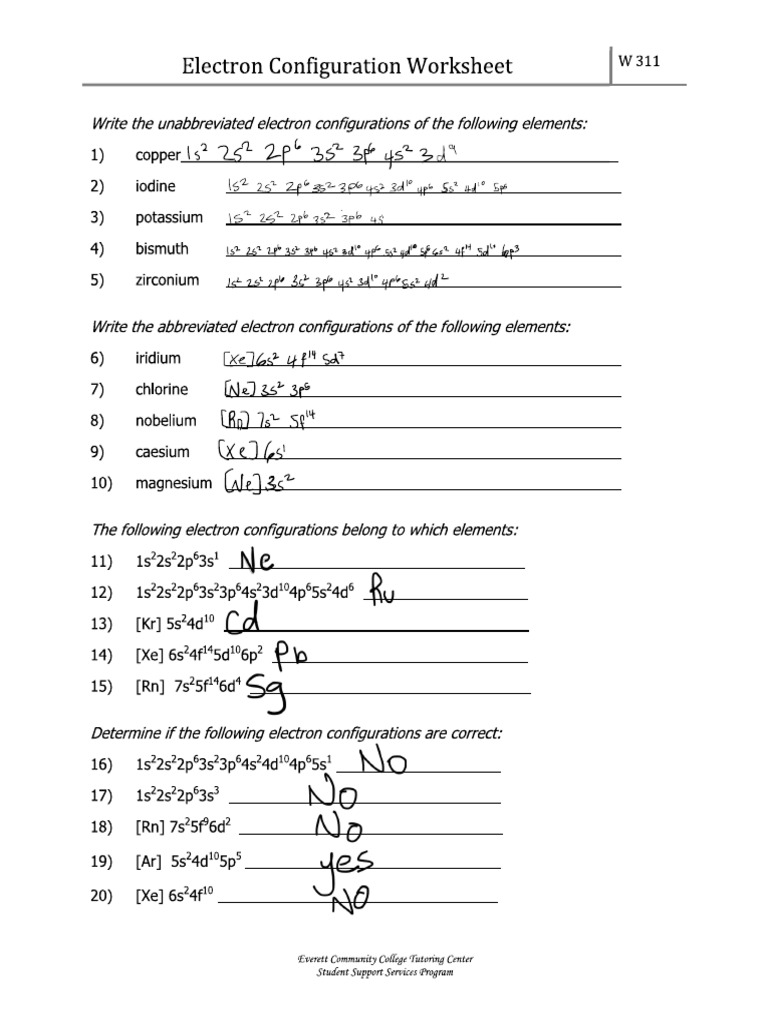 Electron Configuration Worksheet
W 311
Write the unabbreviated electron configurations of the following elements:
1) copper 1s² 2s² 2p⁶ 3s² 3p⁶ 4s² 3d⁹
2) iodine 1s² 2s² 2p⁶ 3s² 3p⁶ 4s² 3d¹⁰ 4p⁶ 5s² 4d¹⁰ 5p⁶
3) potassium 1s² 2s² 2p⁶ 3s² 3p⁶ 4s
4) bismuth 1s² 2s² 2p⁶ 3s² 3p⁶ 4s² 3d¹⁰ 4p⁶ 5s² 4d¹⁰ 5p⁶ 6s² 4f¹⁴ 5d¹⁰ 6p³
5) zirconium 1s² 2s² 2p⁶ 3s² 3p⁶ 4s² 3d¹⁰ 4p⁶ 5s² 4d²
Write the abbreviated electron configurations of the following elements:
6) iridium [Xe] 6s² 4f¹⁴ 5d⁷
7) chlorine [Ne] 3s² 3p⁵
8) nobelium [Rn] 7s² 5f¹⁴
9) caesium [Xe] 6s¹
10) magnesium [Ne] 3s²
The following electron configurations belong to which elements:
11) 1s²2s²2p⁶3s¹ Ne
12) 1s²2s²2p⁶3s²3p⁶4s²3d¹⁰4p⁶5s²4d⁶ Ru
13) [Kr] 5s²4d¹⁰ Cd
14) [Xe] 6s²4f¹⁴5d¹⁰6p² Pb
15) [Rn] 7s²5f¹⁴6d⁴ Sg
Determine if the following electron configurations are correct:
16) 1s²2s²2p⁶3s²3p⁶4s²4d¹⁰4p⁶5s¹ No
17) 1s²2s²2p⁶3s³ No
18) [Rn] 7s²5f⁹6d² No
19) [Ar] 5s²4d¹⁰5p⁵ yes
20) [Xe] 6s²4f¹⁰ NO
Everett Community College Tutoring Center
Student Support Services Program